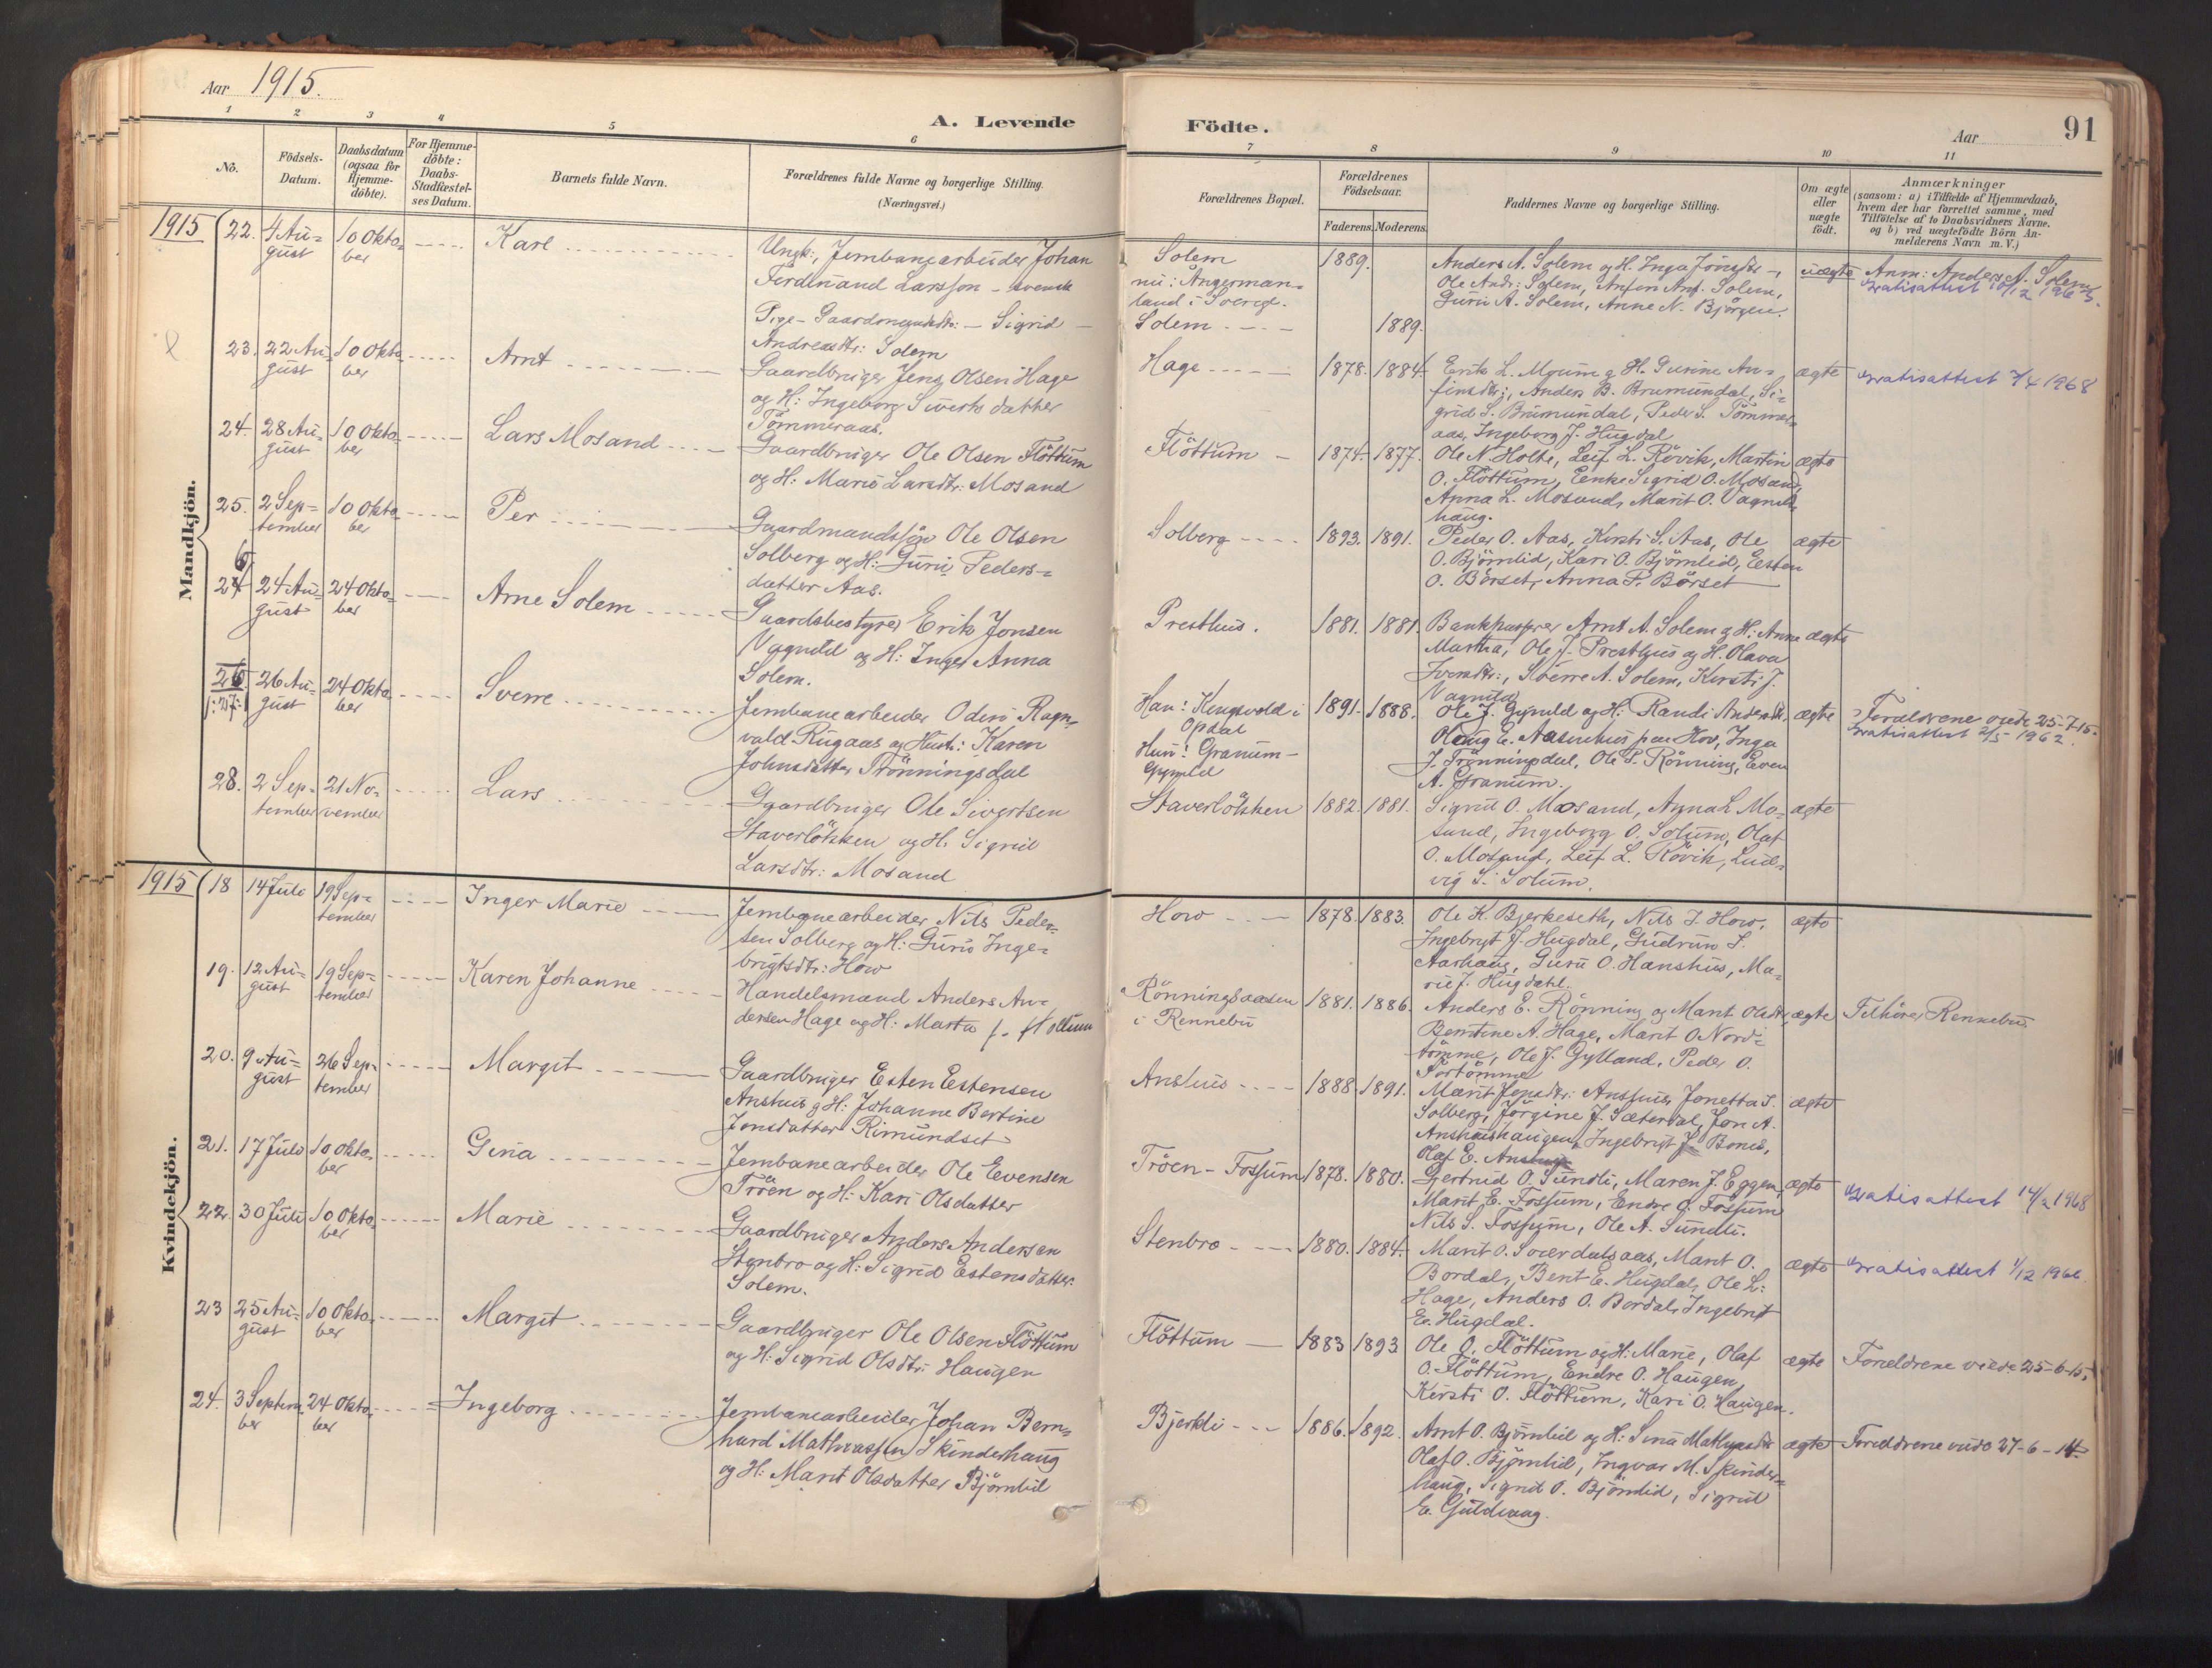 Aar 1915.
A. Levende
Födte.
Aar
91
1
2
3
4
5
6
7
8
9
10
11
No.
Födsels-
Datum.
Daabsdatum
(ogsaa for
Hjemme-
döbte).
For Hjemme-
döbte:
Daabs-
Stadfæstel-
ses Datum.
Barnets fulde Navn.
Forældrenes fulde Navne og borgerlige Stilling.
(Næringsvei.)
Forældrenes Bopæl.
Forældrenes
Födselsaar.
Faderens.
Moderens.
Faddernes Navne og borgerlige Stilling.
Om ægte
eller
uægte
födt.
Anmærkninger
(saasom: a) i Tilfælde af Hjemmedaab,
hvem der har forrettet samme, med
Tilföielse af to Daabsvidners Navne.
og b) ved uægtefödte Börn An-
melderens Navn m. V.)
Mandkjön.
1915
22. 4 Au-
gust
10 Okto-
ber
Karl
Ungk., Jernbanearbeider Johan
Ferdinand Larsson - svensk
Pige - Gaardmandsdtr: - Sigrid -
Andreasdtr: Solem
Solem
nu: Angerman-
land i Sverige.
Solem
1889.
1889.
Anders A. Solem og H. Inga Jönsdtr -,
Ole Andr: Solem, Anfin Anf. Solem,
Guru A. Solem, Anne N. Björgen.
uægte
Anm: Anders A. Solem
Gratisattest 10/12 1963.
23. 22 Au-
gust
10 Okto-
ber
Arnt
Gaardbruger Jens Olsen Hage
og H: Ingeborg Siverts datter
Tömmeraas.
Hage
1878. 1884.
Erik L. Moum og H. Gurine An-
finsdtr:, Anders B. Brumundal, Si-
grid S. Brumundal, Peder S. Tömmer-
aas, Ingeborg J. Hugdal
ægte
Gratisattest 7/4 1968
24. 28 Au-
gust
10 Okto-
ber
Lars Mosand
Gaardbruger Ole Olsen Flöttum
og H: Marie Larsdtr: Mosand
Flöttum
1874. 1877.
Ole N. Holte, Leif L. Rövik, Martin
O. Flöttum, Enke Sigrid O. Mosand,
Anna L. Mosand, Marit O. Vagnild
haug.
ægte
25. 2 Sep-
tember
10 Okto-
ber
Per
Gaardmandssön Ole Olsen
Solberg og H: Guru Peders-
datter Aas.
Solberg
1893. 1891.
Peder O. Aas, Kirsti S. Aas, Ole
O. Björnlid, Kari O. Björnlid, Esten
O. Börset, Anna P. Börset
ægte
26 24 Au-
gust
24 Okto-
ber
Arne Solem
Gaardsbestyrer Erik Jonsen
Vagnild og H: Inger Anna
Solem.
Presthus.
1881. 1881.
Bankkasserer Arnt A. Solem og H: Anne
Martha, Ole J. Presthus og H. Olava
Iversdtr:, Sverre A. Solem, Kirsti J.
Vagnild
ægte
26.
/:27:/
26 Au-
gust
24 Okto-
ber
Sverre
Jernbanearbeider Odin Ragn-
vald Rugaas og Hustr: Karen
Johnsdatter Trönningsdal
Han: Kongsvold i
Opdal
Hun: Granum-
Gynnild
1891. 1888.
Ole J. Gynnild og H: Randi Andersdtr,
Olaug E. Aasenhus paa Hov, Inga
J. Trönningsdal, Ole P. Rönning, Even
A. Granum.
ægte
Forældrene viede 25-7-15.
Gratisattest 2/5 1962.
28. 2 Sep-
tember
21 No-
vember
Lars
Gaardbruger Ole Sivertsen
Staverlökken og H. Sigrid
Larsdtr: Mosand
Staverlökken
1882. 1881.
Sigrid O. Mosand, Anna L. Mo-
sand, Ingeborg O. Solum, Olaf
O. Mosand, Leif L. Rövik, Lud-
vig S. Solum.
ægte
Kvindekjön.
1915
18 14 Juli
19 Sep-
tember
Inger Marie
Jernbanearbeider Nils Peder-
sen Solberg og H: Guru Inge-
brigtsdtr: How
How
1878. 1883.
Ole K. Bjerkeseth, Nils I. How,
Ingebrigt J. Hugdal, Gudrun S.
Aarhaug, Guru O. Hanshus, Ma-
rie J. Hugdahl.
ægte
19. 12 Au-
gust
19 Sep-
tember
Karen Johanne
Handelsmand Anders An-
dersen Hage og H: Marta f. Flöttum
Rönningsaasen
i Rennebu
1881. 1886.
Anders E. Rönning og Marit Olsdtr,
Berntine A. Hage, Marit O. Nord-
tömme, Ole J. Gylland, Peder O.
Fortömme
ægte
Tilhörer Rennebu.
20. 9 Au-
gust
26 Sep-
tember
Margit
Gaardbruger Esten Estensen
Anshus og H: Johanne Bertine
Jonsdatter Rimundset
Anshus
1888. 1891.
Marit Jonsdtr: Anshus, Jonetta S.
Solberg, Jörgine J. Sæterdal, Jon A.
Anshushaugen, Ingebrigt J. Bones,
Olaf E. Anshus
ægte
21. 17 Juli
10 Okto-
ber
Gina
Jernbanearbeider Ole Evensen
Tröen og H: Kari Olsdatter
Tröen - Fossum
1878. 1880.
Gjertrud O. Sundli, Maren J. Eggen,
Marit E. Fossum, Endre O. Fossum
Nils S. Fossum, Ole A. Sundli.
ægte
Gratisattest 14/2 1968
22. 30 Juli
10 Okto-
ber
Marie
Gaardbruger Anders Andersen
Stenbro og H: Sigrid Estensdatter
Solem.
Stenbro
1880. 1884.
Marit O. Sverdalsaas, Marit O.
Bordal, Bent E. Hugdal, Ole L.
Hage, Anders O. Bordal, Ingebrigt
E. Hugdal.
ægte
Gratisattest 1/12 1966.
23 25 Au-
gust
10 Okto-
ber
Margit
Gaardbruger Ole Olsen Flöttum
og H: Sigrid Olsdtr: Haugen
Flöttum
1883 1893
Ole O. Flöttum og H: Marie, Olaf
O. Flöttum, Endre O. Haugen,
Kirsti O. Flöttum, Kari O. Haugen.
ægte
Foreldrene viede 25-6-15.
24. 3 Septem-
ber
24 Okto-
ber
Ingeborg
Jernbanearbeider Johan Bern-
hard Mathiassen Skinderhaug
og H: Marit Olsdatter Björnlid
Bjerkli
1886. 1892.
Arnt O. Björnlid og H: Sina Mathiasdtr
Olaf O. Björnlid, Ingvar M. Skinder-
haug, Sigrid O. Björnlid, Sigrid
E. Guldvaag.
ægte
Foreldrene viede 27-6-14.